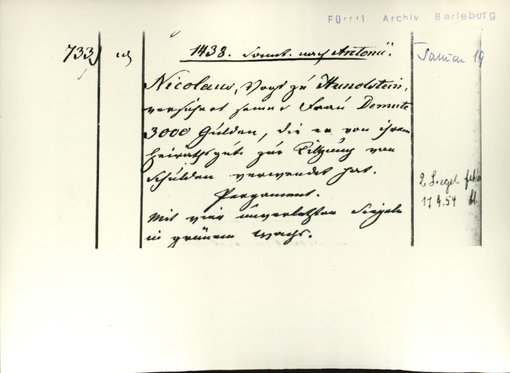 Fürstl. Archiv Berleburg
733
1438. Sonnt. nach Antonii.
Januar 19
Nicolaus, Vogt zu Hundstein,
versichert seiner Frau Demute
3000 Gulden, die er von ihrem
Heirathsgut zur Tilgung von
Schulden verwendet hat.
Pergament.
Mit vier unverletzten Siegeln
in grünem Wachs.
2 Siegel
17.9.54